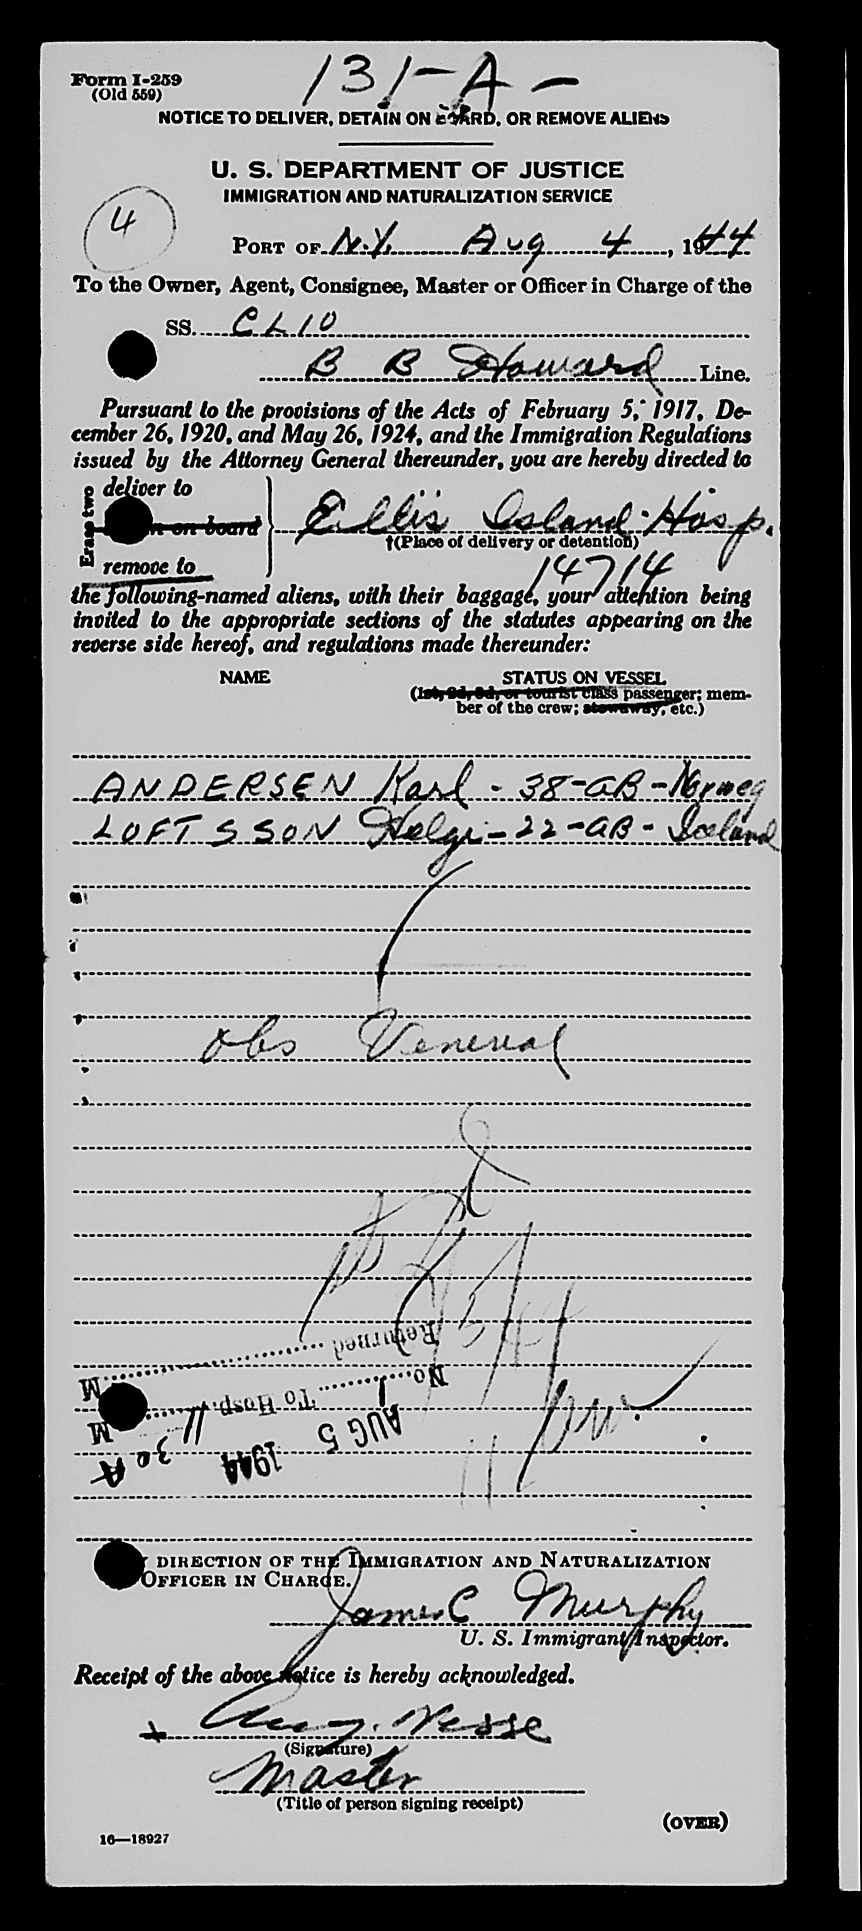 131-A-
Form I-259
(Old 559)
NOTICE TO DELIVER, DETAIN ON BOARD, OR REMOVE ALIENS
U. S. DEPARTMENT OF JUSTICE
IMMIGRATION AND NATURALIZATION SERVICE
4
PORT OF N.Y. Aug 4, 1944
To the Owner, Agent, Consignee, Master or Officer in Charge of the
SS. CLIO
B B Howard Line.
Pursuant to the provisions of the Acts of February 5, 1917, De-
cember 26, 1920, and May 26, 1924, and the Immigration Regulations
issued by the Attorney General thereunder, you are hereby directed to
Erase two
deliver to
on board
remove to
Ellis Island Hosp.
†(Place of delivery or detention)
14714
the following-named aliens, with their baggage, your attention being
invited to the appropriate sections of the statutes appearing on the
reverse side hereof, and regulations made thereunder:
NAME STATUS ON VESSEL
(1st, 2d, 3d, or tourist class passenger; mem-
ber of the crew; stowaway, etc.)
ANDERSEN Karl - 38-AB-Norweg
LOFTSSON Helgi-22-AB-Iceland
obs Venereal
Returned M
No. 1 To Hosp. M
AUG 5 1944 11 30 A
DIRECTION OF THE IMMIGRATION AND NATURALIZATION
OFFICER IN CHARGE.
James C Murphy
U. S. Immigrant Inspector.
Receipt of the above notice is hereby acknowledged.
Nesse
(Signature)
Master
(Title of person signing receipt)
(OVER)
16—18927